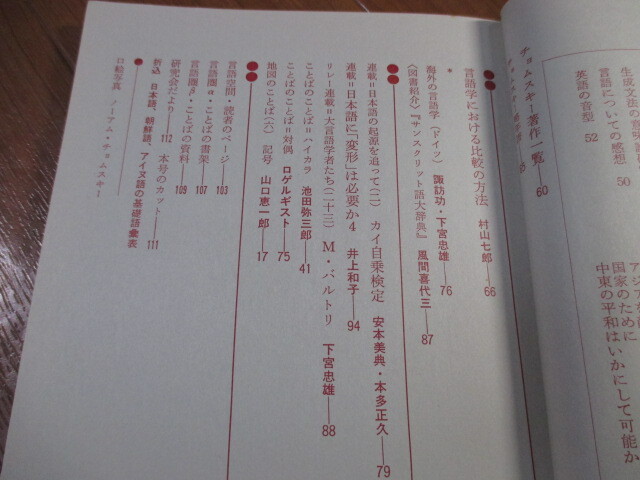 アジアを
国家のために
中東の平和はいかにして可能か
生成文法の
言語についての感想 52
英語の音型
チョムスキー著作一覧——60
言語学における比較の方法 村山七郎——66
海外の言語学(ドイツ) 諏訪功・下宮忠雄——76
〈図書紹介〉『サンスクリット語大辞典』 風間喜代三——87
連載=日本語の起源を追って(二) カイ自乗検定 安本美典・本多正久——79
連載=日本語に「変形」は必要か4 井上和子——94
リレー連載=大言語学者たち(二十三) M・バルトリ 下宮忠雄——88
ことばのことば=ハイカラ 池田弥三郎——41
ことばのことば=対偶 ロゲルギスト——75
地図のことば(六) 記号 山口恵一郎——17
言語空間・読者のページ——103
言語圏α・ことばの書架——107
言語圏β・ことばの資料——109
研究会だより——112 本号のカット——111
折込 日本語、朝鮮語、アイヌ語の基礎語彙表
口絵写真 ノーアム・チョムスキー